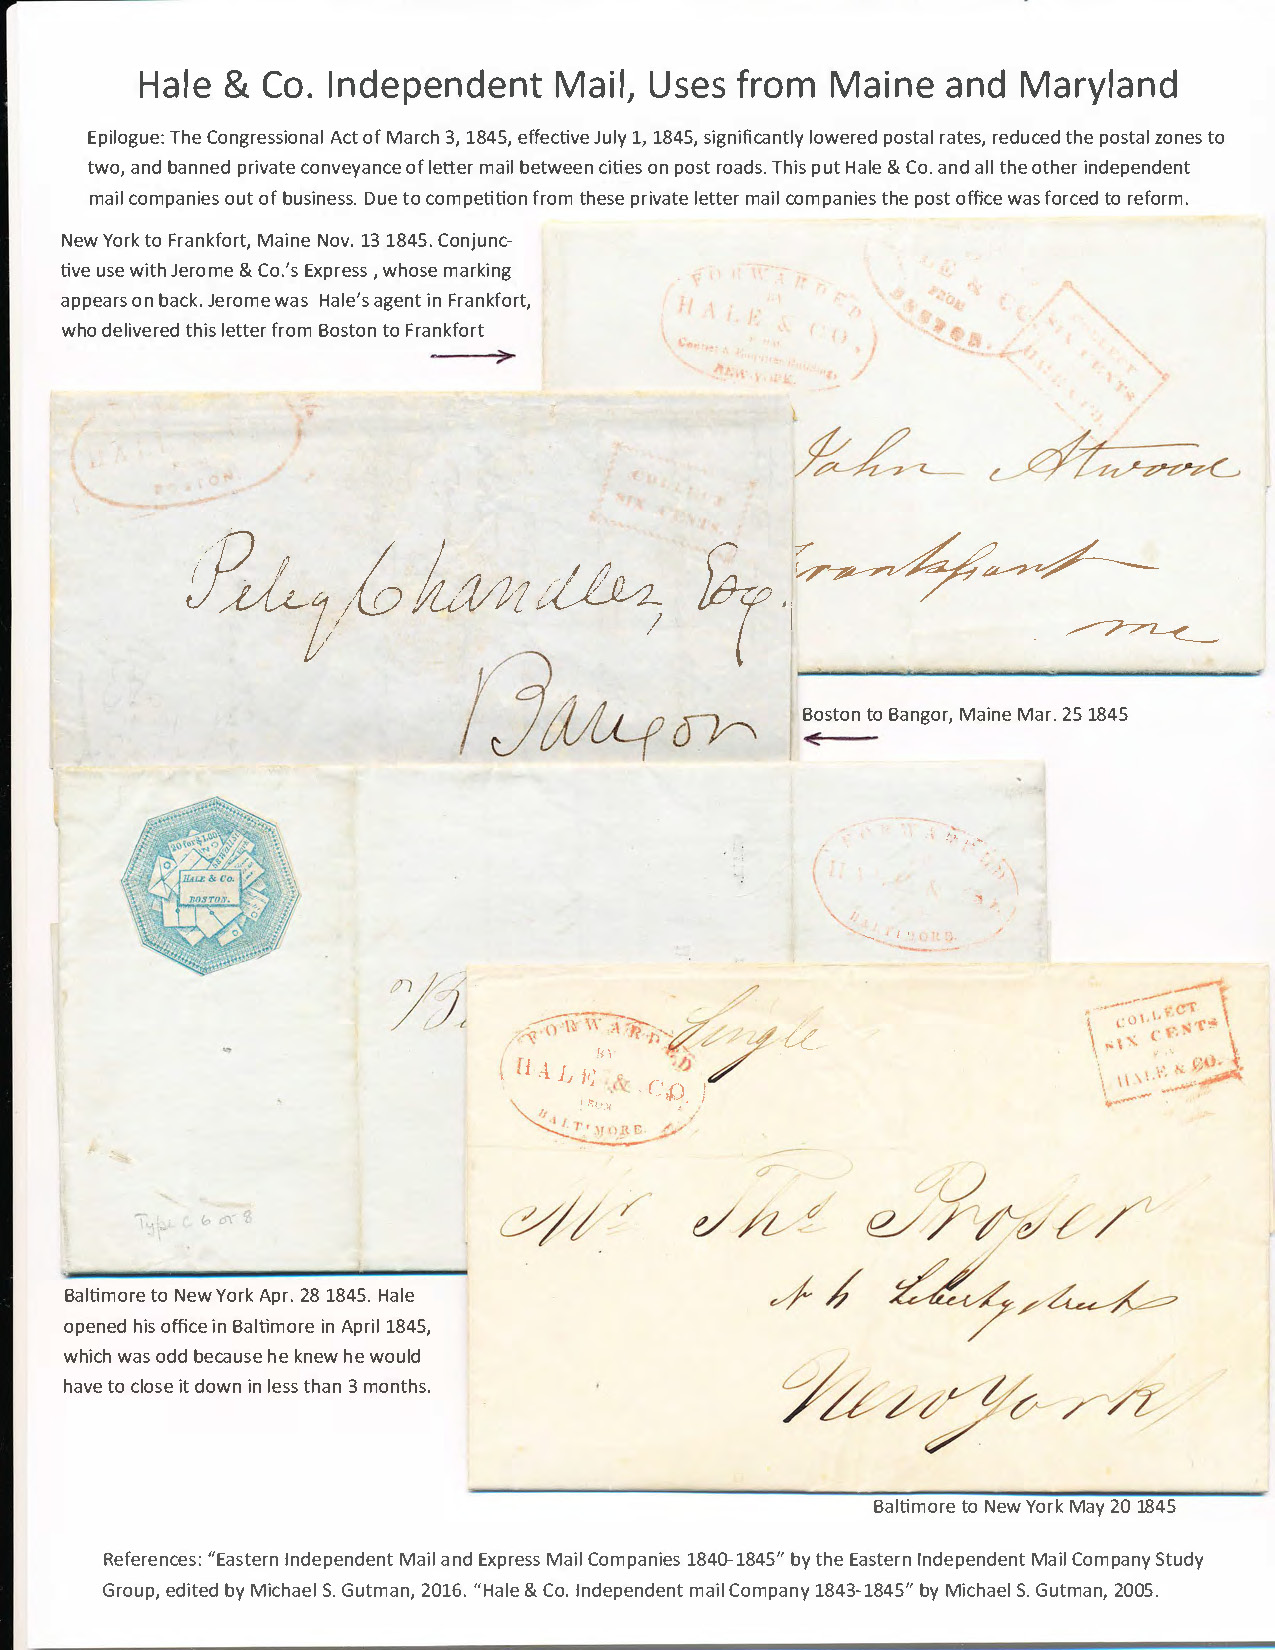 Hale & Co. Independent Mail, Uses from Maine and Maryland
Epilogue: The Congressional Act of March 3, 1845, effective July 1, 1845, significantly lowered postal rates, reduced the postal zones to
two, and banned private conveyance of letter mail between cities on post roads. This put Hale & Co. and all the other independent
mail companies out of business. Due to competition from these private letter mail companies the post office was forced to reform.
New York to Frankfort, Maine Nov. 13 1845. Conjunc-
tive use with Jerome & Co.'s Express , whose marking
appears on back. Jerome was Hale's agent in Frankfort,
who delivered this letter from Boston to Frankfort
FORWARDED
BY
HALE & CO.
NEW-YORK.
LE & CO
FROM
BOSTON.
COLLECT
SIX CENTS
HALE & CO.
John Atwood
rankfort
me
BOSTON.
COLLECT
SIX CENTS.
Peleg Chandler, Esq.
Bangor
Boston to Bangor, Maine Mar. 25 1845
20 for $1.00
HALE & Co.
BOSTON.
FORWARDED
HALE & CO.
BALTIMORE.
Type C 6 or 8
Single
FORWARDED
BY
HALE & CO.
FROM
BALTIMORE.
COLLECT
SIX CENTS
HALE & CO.
Mr Thos Prosser
Liberty street
New York
Baltimore to New York Apr. 28 1845. Hale
opened his office in Baltimore in April 1845,
which was odd because he knew he would
have to close it down in less than 3 months.
Baltimore to New York May 20 1845
References: "Eastern Independent Mail and Express Mail Companies 1840-1845" by the Eastern Independent Mail Company Study
Group, edited by Michael S. Gutman, 2016. "Hale & Co. Independent mail Company 1843-1845" by Michael S. Gutman, 2005.